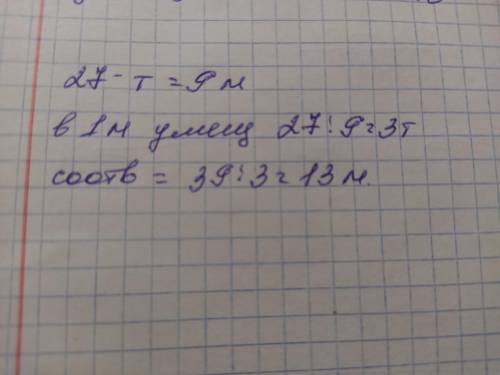 27- т = 9 м
в 1 м умещ 27:9=3т
соотв = 39:3=13 м.